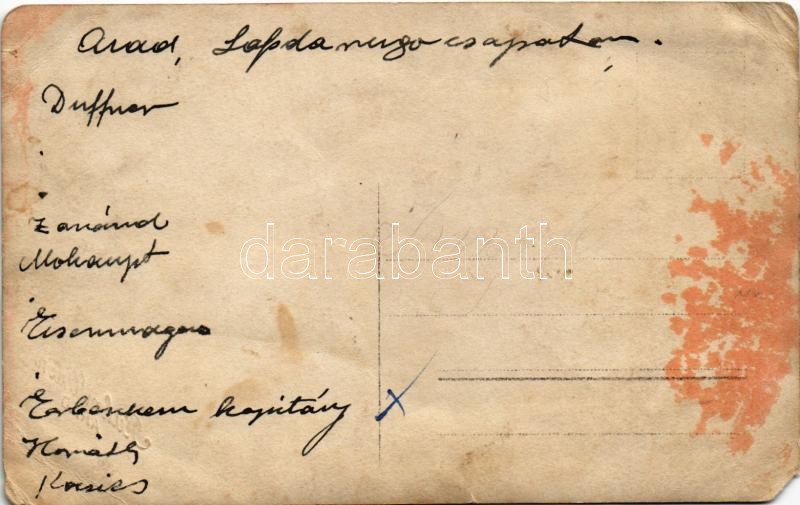 Arad, Labdarugo csapatom.
Duffner
Zaránd
Mohaupt
Eisenmagen
kapitány
Horváth
Kocsis
darabanth